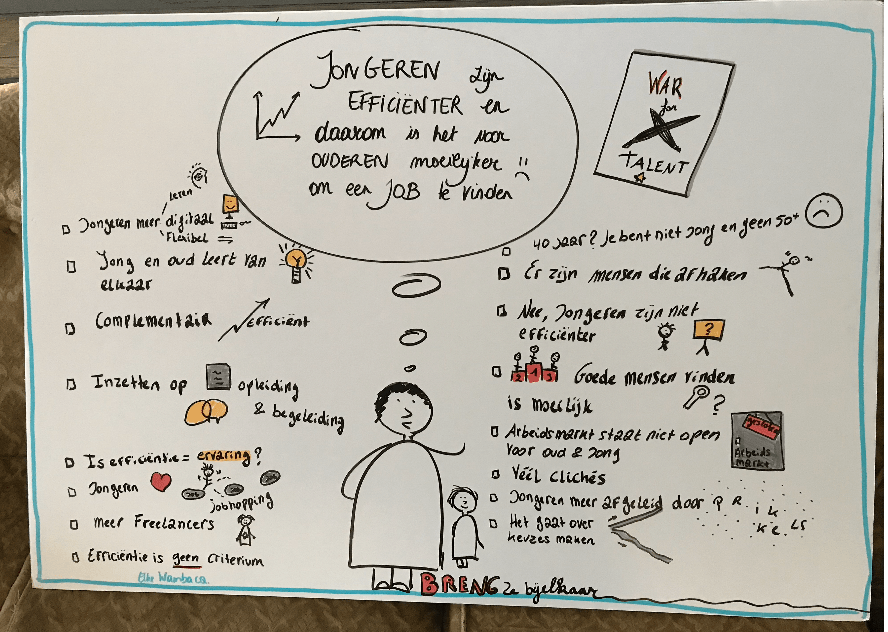 JONGEREN zijn
EFFICIËNTER en
daarom is het voor
OUDEREN moeilijker
om een JOB te vinden
WAR
for
TALENT
leren
Jongeren meer digitaal
Flexibel
Jong en oud leert van
elkaar
Complementair
efficiënt
Inzetten op opleiding
& begeleiding
Is efficiëntie = ervaring?
Jongeren
Job
Job
jobhopping
meer Freelancers
Efficiëntie is geen criterium
Elke Wambacq
40 jaar? Je bent niet jong en geen 50+
Er zijn mensen die afhaken
Nee, Jongeren zijn niet
efficiënter
?
2 1 3 Goede mensen vinden
is moeilijk
?
Arbeidsmarkt staat niet open
voor oud & jong
gesloten
Arbeids
markt
Véél clichés
Jongeren meer afgeleid door PRIKKELS
Het gaat over
keuzes maken
BRENG ze bijelkaar